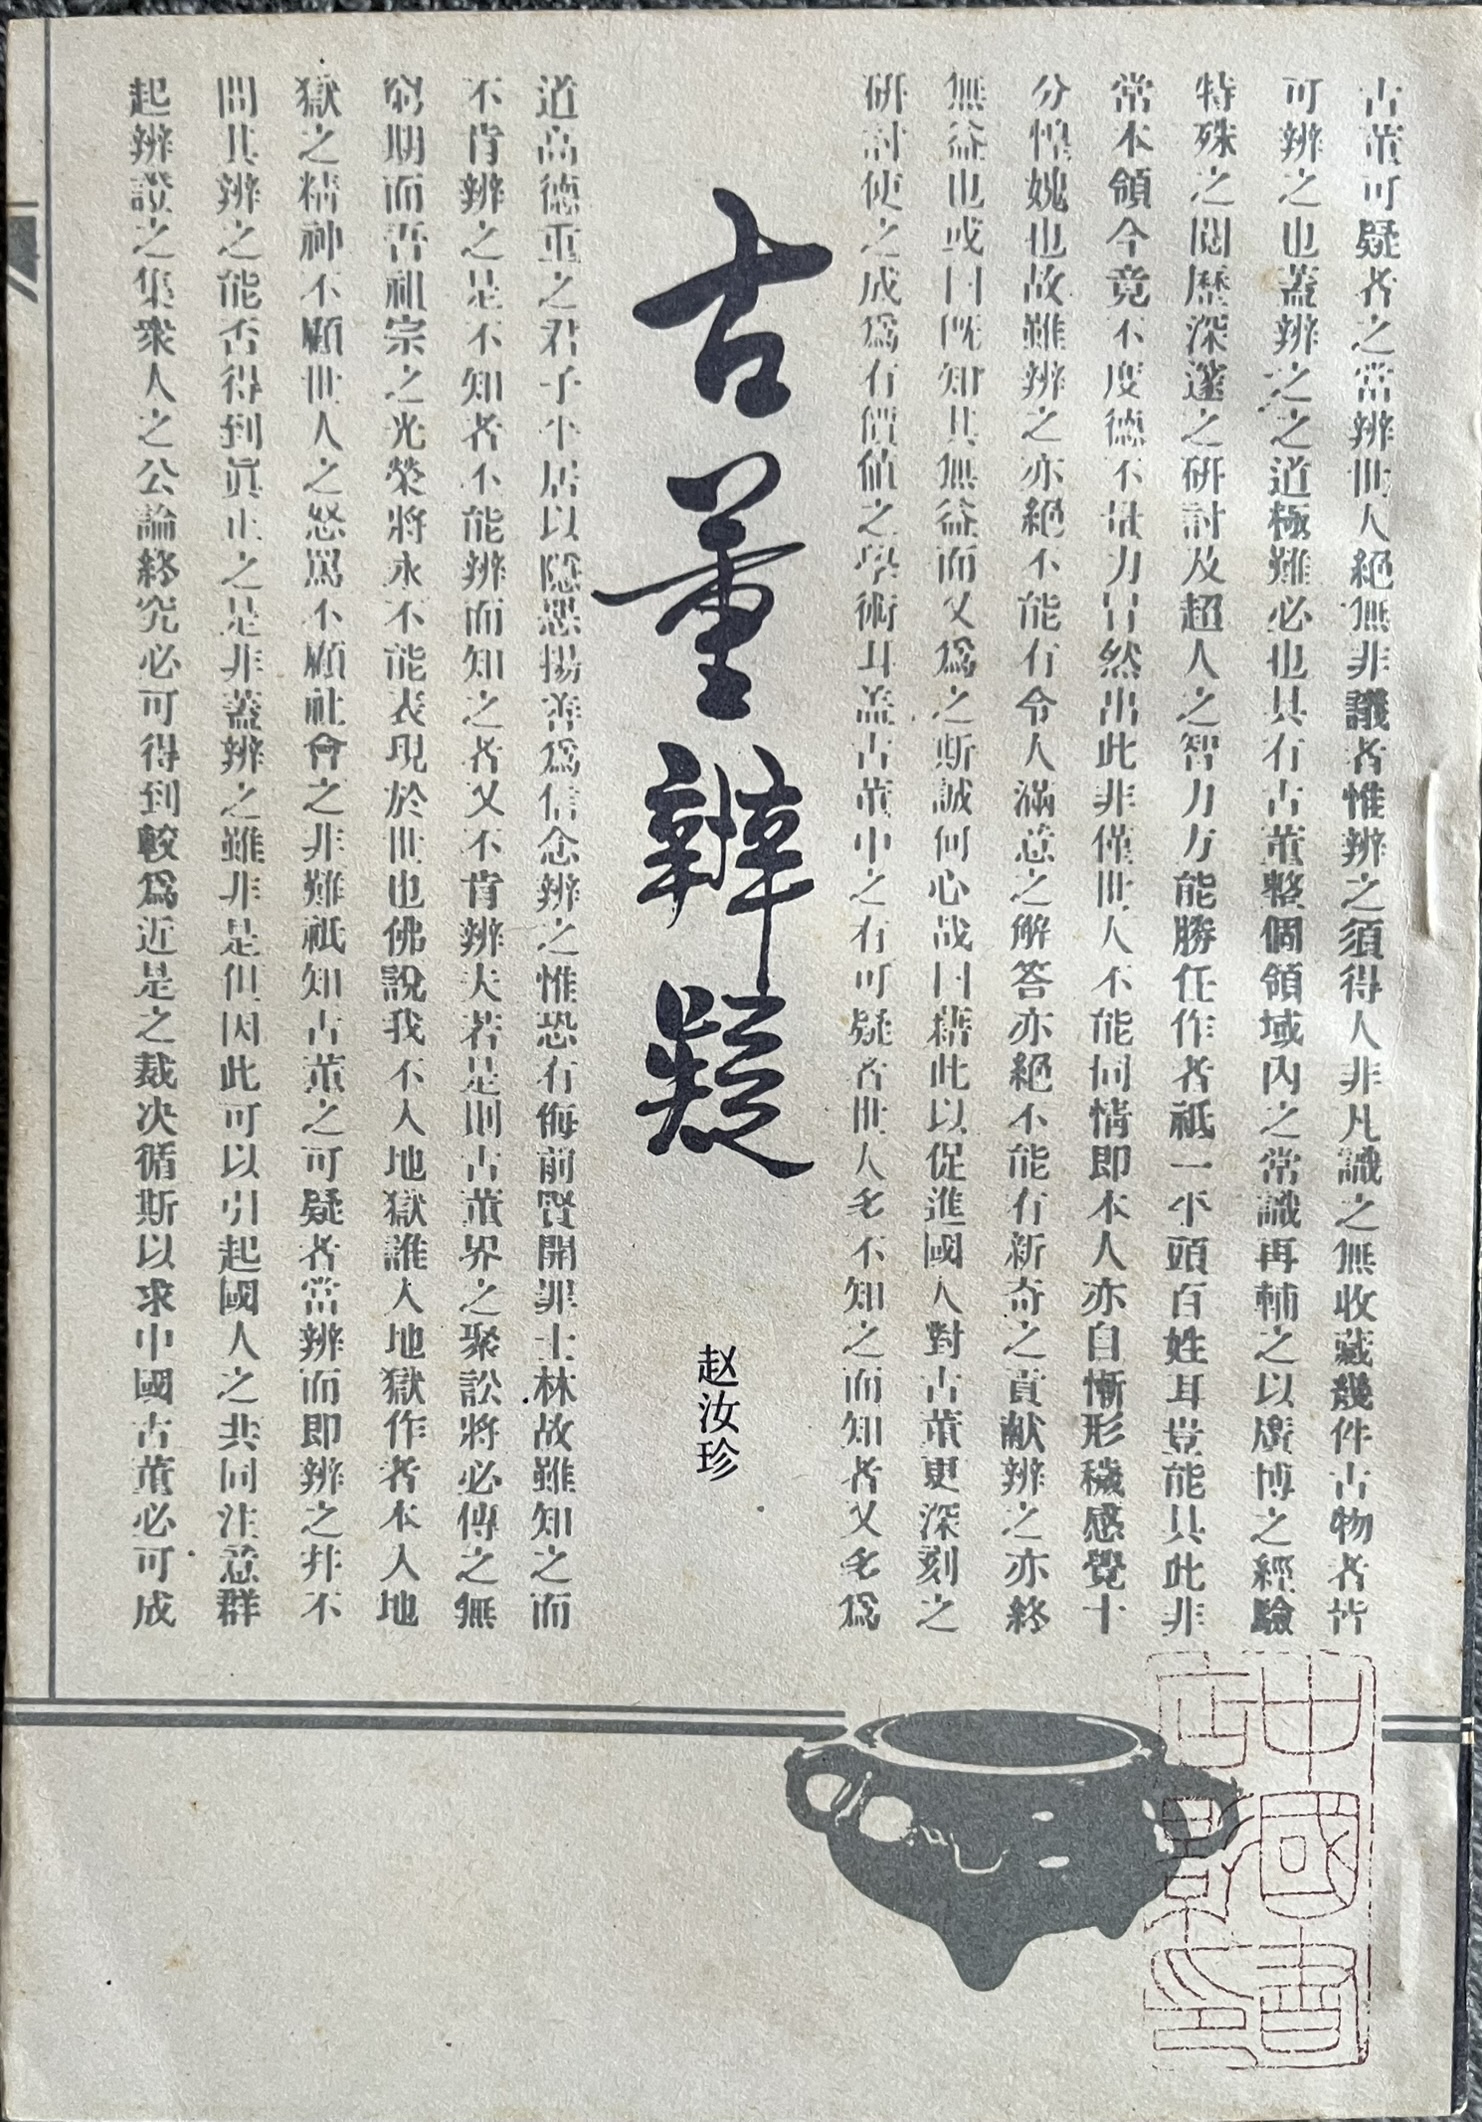 古董可疑者之當辨世人絕無非議者惟辨之須得人非凡識之無收藏幾件古物者皆
可辨之也蓋辨之之道極難必也具有古董整個領域內之常識再輔之以廣博之經驗
特殊之閱歷深邃之研討及超人之智力方能勝任作者祇一平頭百姓耳豈能具此非
常本領今竟不度德不量力冒然出此非僅世人不能同情即本人亦自慚形穢感覺十
分惶媿也故雖辨之亦絕不能有令人滿意之解答亦絕不能有新奇之貢献辨之亦終
無益也或曰既知其無益而又爲之斯誠何心哉曰藉此以促進國人對古董更深刻之
研討使之成爲有價值之學術耳盖古董中之有可疑者世人多不知之而知者又多爲
古董辨疑
赵汝珍
道高德重之君子平居以隱惡揚善爲信念辨之惟恐有侮前賢開罪士林故雖知之而
不肯辨之是不知者不能辨而知之者又不肯辨夫若是則古董界之聚訟將必傳之無
窮期而吾祖宗之光榮將永不能表現於世也佛說我不入地獄誰入地獄作者本入地
獄之精神不顧世人之怒罵不顧社會之非難祇知古董之可疑者當辨而即辨之并不
問其辨之能否得到眞正之是非蓋辨之雖非是但因此可以引起國人之共同注意群
起辨證之集衆人之公論終究必可得到較爲近是之裁决循斯以求中國古董必可成
中國書
店影印